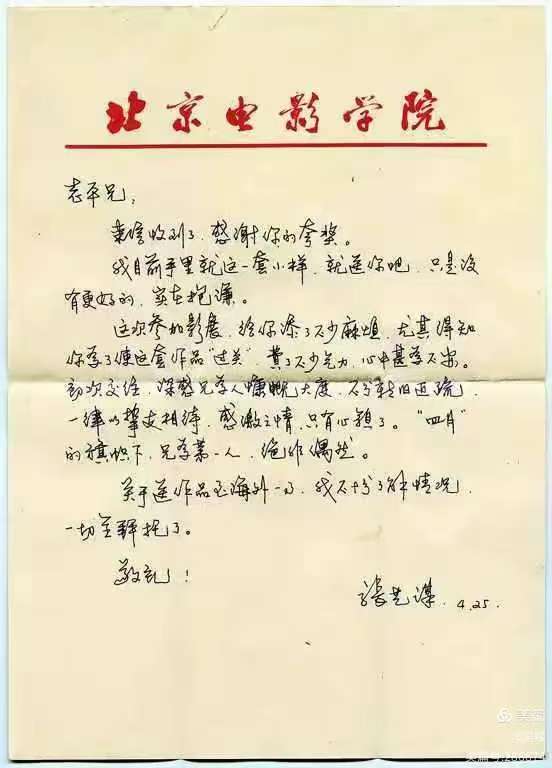 北京电影学院
志平兄：
来信收到了，感谢你的夸奖。
我目前手里就这一套小样，就送你吧，只是没
有更好的，实在抱谦。
这次参加影展，给你添了不少麻烦，尤其得知
你为了使这套作品“过关”，费了不少气力，心中甚为不安。
初次交往，深感兄为人慷慨大度，不分新旧近疏，
一律以挚友相待，感激之情，只有心领了。“四月”
的旗帜下，兄为第一人，绝非偶然。
关于送作品至海外一事，我不十分了解情况，
一切全拜托了。
敬礼！
张艺谋 4.25.